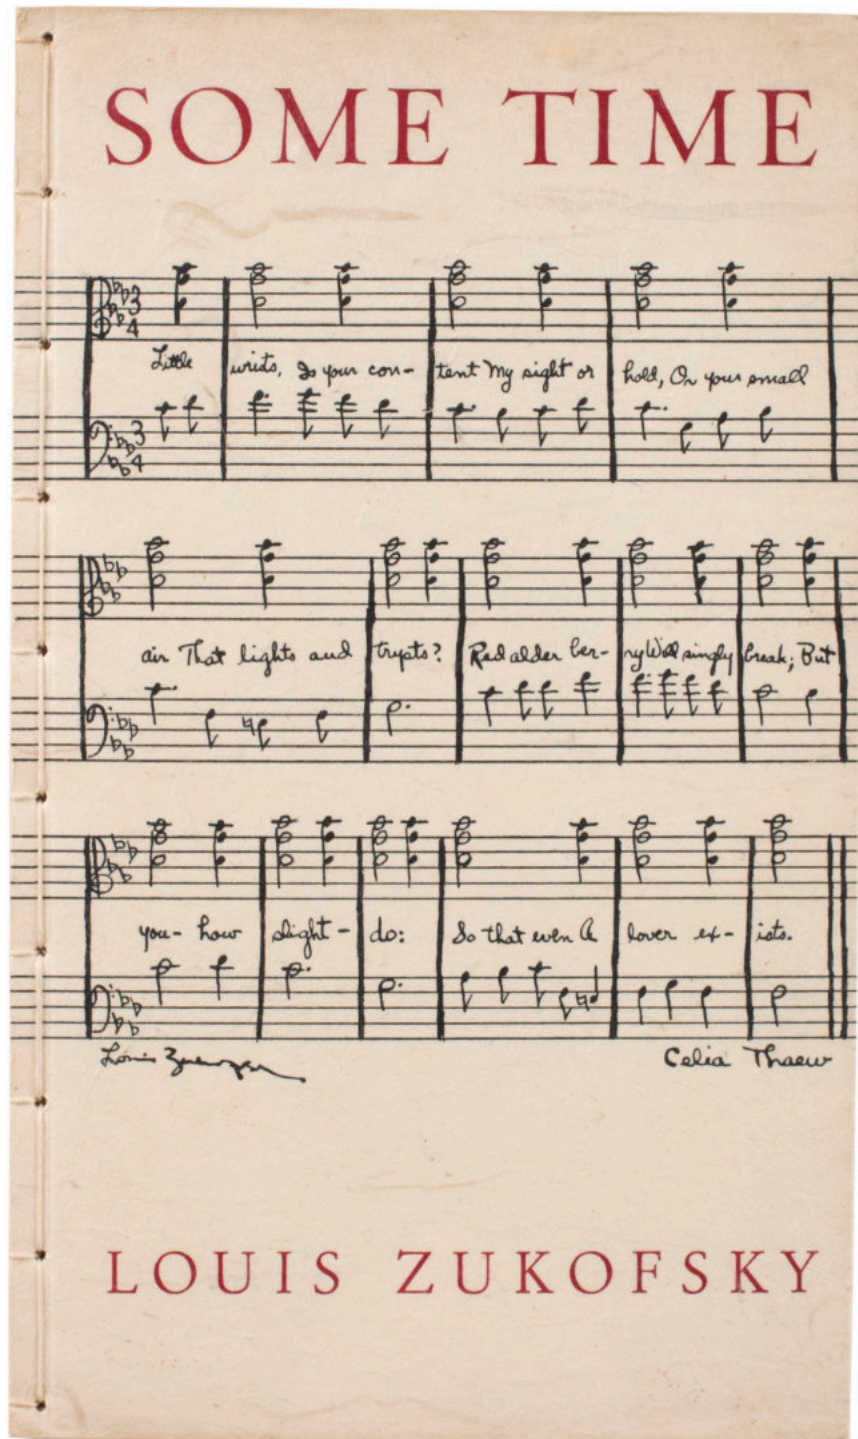 SOME TIME
3 4
Little wrists, Is your con- tent My sight or hold, Or your small
3 4
air That lights and trysts? Red alder ber- ry Will singly break; But
you- how slight- do: So that even A lover ex- ists.
Louis Zukofsky Celia Thaew
LOUIS ZUKOFSKY